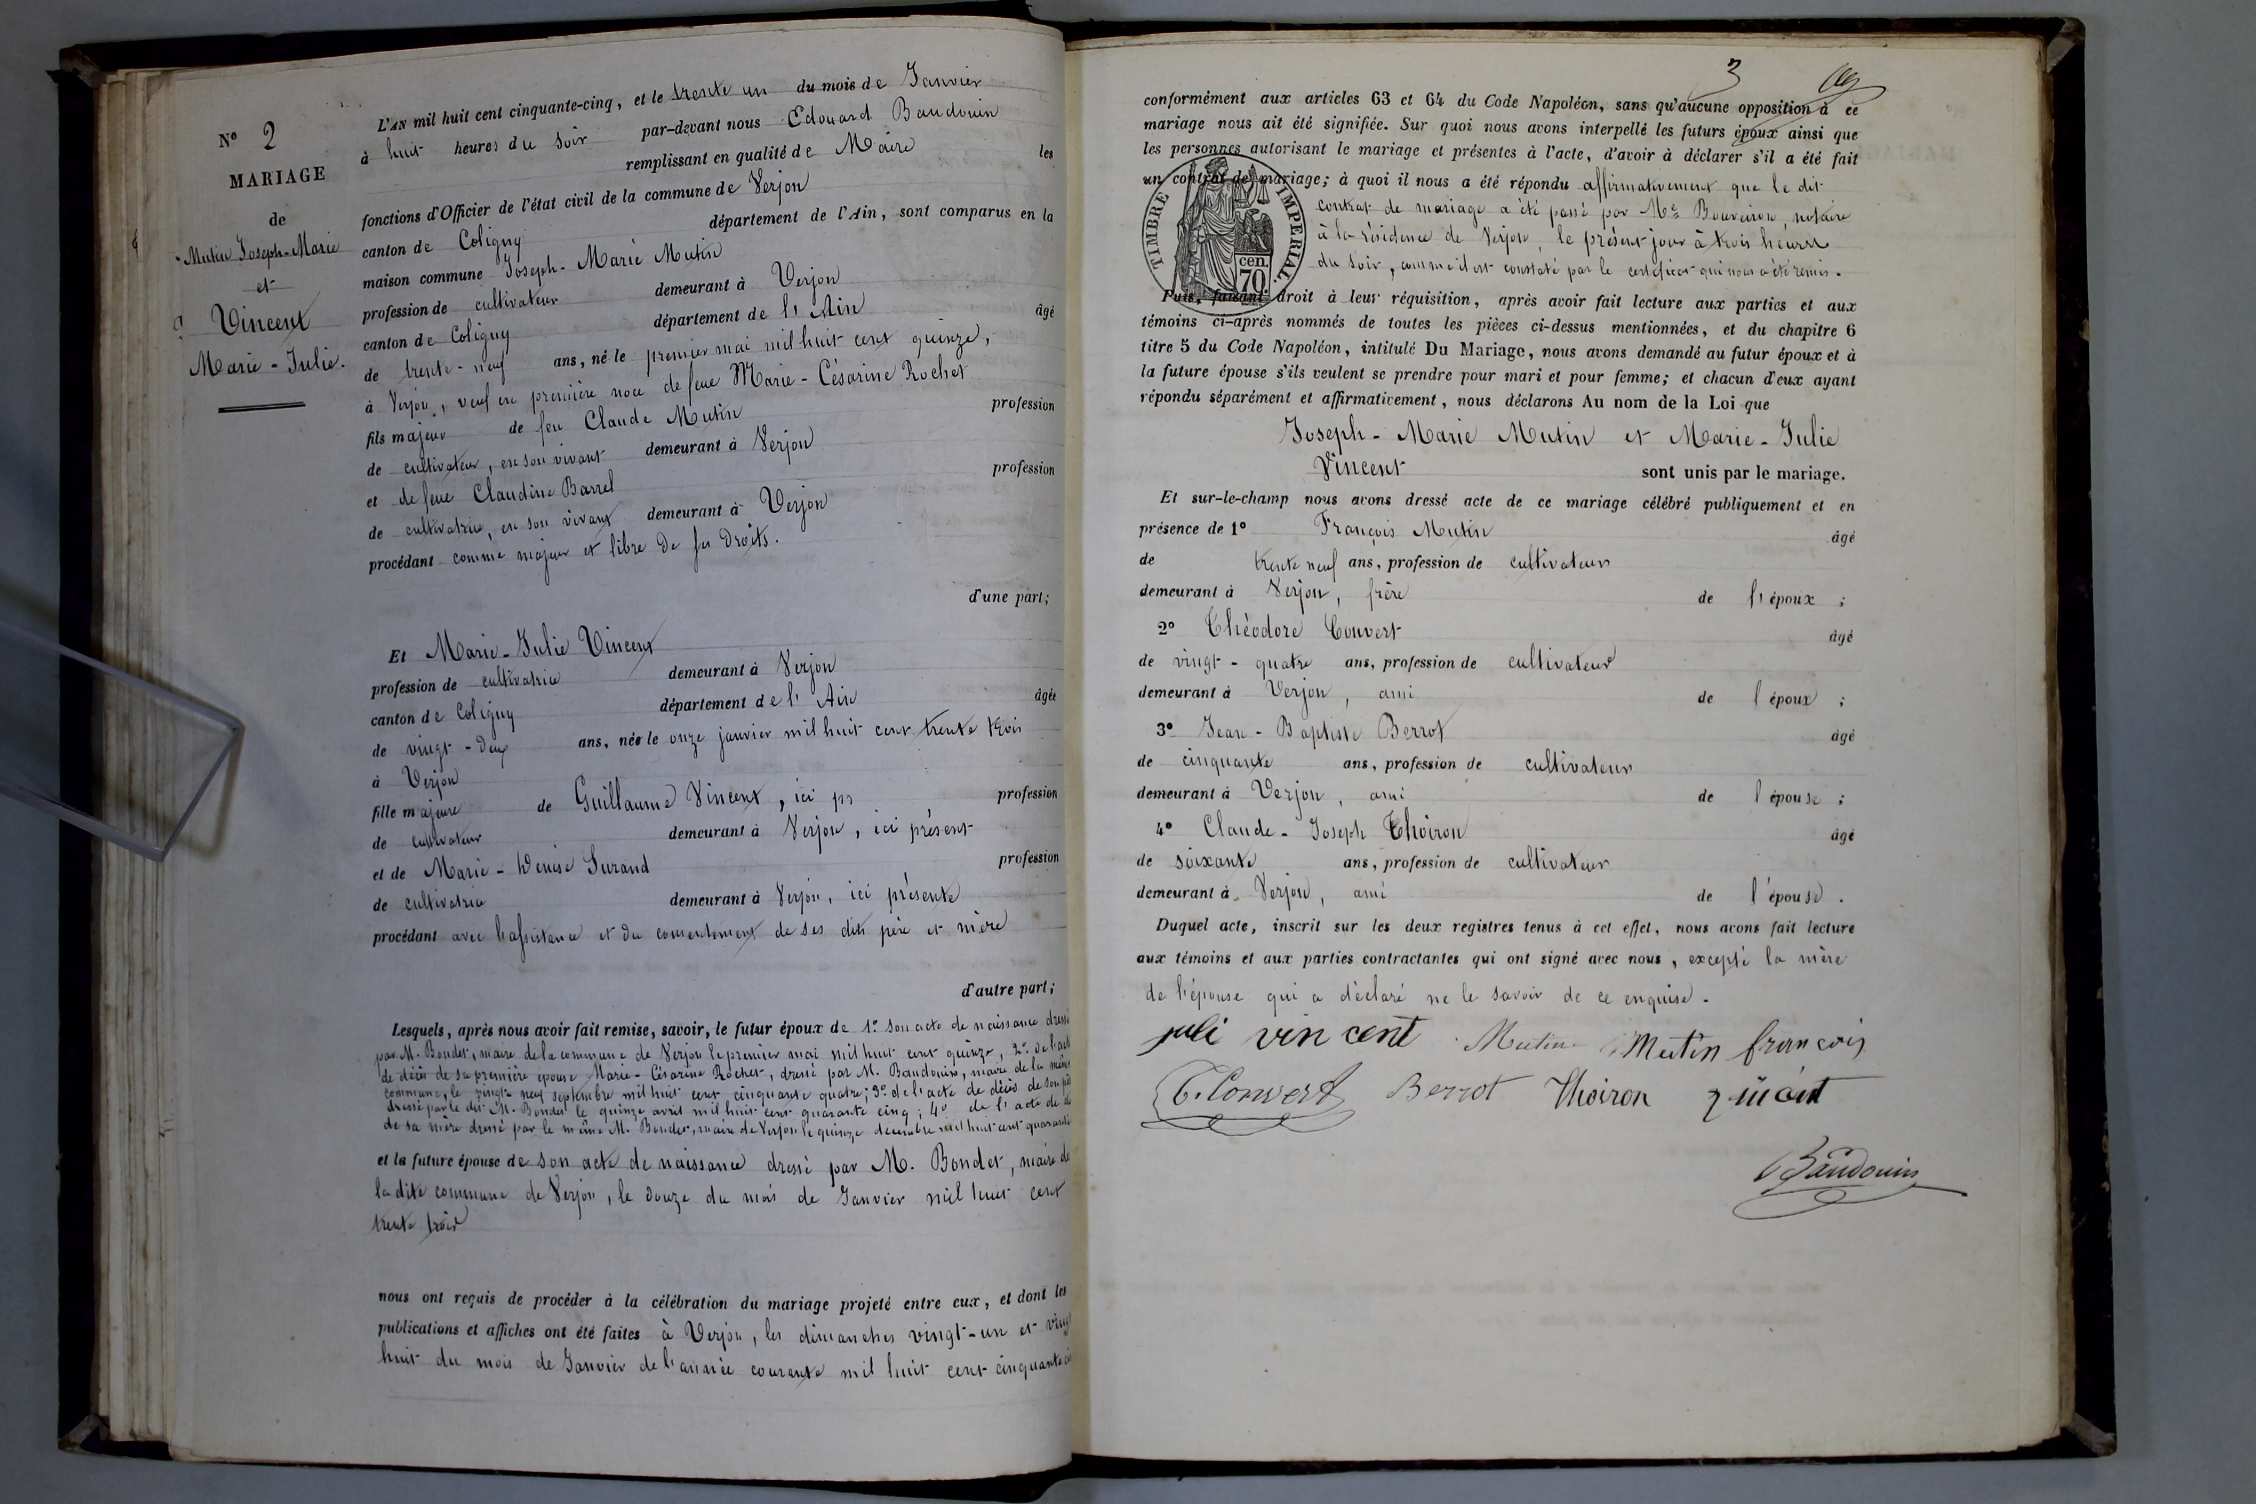 N° 2
MARIAGE
de
Mutin Joseph-Marie
et
Vincent
Marie-Julie.
L'AN mil huit cent cinquante-cinq, et le trente un du mois de Janvier
à huit heures du soir par-devant nous Edouard Baudouin
remplissant en qualité de Maire les
fonctions d'Officier de l'état civil de la commune de Verjon
canton de Coligny département de l'Ain, sont comparus en la
maison commune Joseph-Marie Mutin
profession de cultivateur demeurant à Verjon
canton de Coligny département de l'Ain âgé
de trente-neuf ans, né le premier mai mil huit cent quinze,
à Verjon, veuf en première noce de feue Marie-Césarine Rochet
fils majeur de feu Claude Mutin profession
de cultivateur, en son vivant demeurant à Verjon
et de feue Claudine Barrel profession
de cultivatrice, en son vivant demeurant à Verjon
procédant comme majeur et libre de ses droits.
d'une part;
Et Marie-Julie Vincent
profession de cultivatrice demeurant à Verjon
canton de Coligny département de l'Ain âgée
de vingt-deux ans, née le onze janvier mil huit cent trente trois
à Verjon
fille majeure de Guillaume Vincent, ici pr profession
de cultivateur demeurant à Verjon, ici présent
et de Marie-Denise Surand profession
de cultivatrice demeurant à Verjon, ici présente
procédant avec l'assistance et du consentement de ses dits père et mère
d'autre part;
Lesquels, après nous avoir fait remise, savoir, le futur époux de 1° son acte de naissance dressé
par M. Bondet, maire de la commune de Verjon le premier mai mil huit cent quinze, 2° de l'acte
de décès de sa première épouse Marie-Césarine Rochet, dressé par M. Baudouin, maire de la même
commune, le vingt neuf septembre mil huit cent cinquante quatre; 3° de l'acte de décès de son père
dressé par le dit M. Bondet le quinze avril mil huit cent quarante cinq; 4° de l'acte de
de sa mère dressé par le même M. Bondet, maire de Verjon le quinze décembre mil huit cent quarante
et la future épouse de son acte de naissance dressé par M. Bondet, maire de
la dite commune de Verjon, le douze du mois de Janvier mil huit cent
trente trois
nous ont requis de procéder à la célébration du mariage projeté entre eux, et dont les
publications et affiches ont été faites à Verjon, les dimanches vingt-un et vingt
huit du mois de Janvier de l'année courante mil huit cent cinquante
3
conformément aux articles 63 et 64 du Code Napoléon, sans qu'aucune opposition à ce
mariage nous ait été signifiée. Sur quoi nous avons interpellé les futurs époux ainsi que
les personnes autorisant le mariage et présentes à l'acte, d'avoir à déclarer s'il a été fait
un contrat de mariage; à quoi il nous a été répondu affirmativement que le dit
contrat de mariage a été passé par Me Bouveiron, notaire
à la résidence de Verjon, le présent jour à trois heures
du soir, comme il est constaté par le certificat qui nous a été remis.
TIMBRE IMPERIAL.
cen.
70
Puis, faisant droit à leur réquisition, après avoir fait lecture aux parties et aux
témoins ci-après nommés de toutes les pièces ci-dessus mentionnées, et du chapitre 6
titre 5 du Code Napoléon, intitulé Du Mariage, nous avons demandé au futur époux et à
la future épouse s'ils veulent se prendre pour mari et pour femme; et chacun d'eux ayant
répondu séparément et affirmativement, nous déclarons Au nom de la Loi que
Joseph-Marie Mutin et Marie-Julie
Vincent sont unis par le mariage.
Et sur-le-champ nous avons dressé acte de ce mariage célébré publiquement et en
présence de 1° François Mutin âgé
de trente neuf ans, profession de cultivateur
demeurant à Verjon, frère de l'époux ;
2° Théodore Convert âgé
de vingt-quatre ans, profession de cultivateur
demeurant à Verjon, ami de l'époux ;
3° Jean-Baptiste Berrot âgé
de cinquante ans, profession de cultivateur
demeurant à Verjon, ami de l'épouse ;
4° Claude-Joseph Thoiron âgé
de soixante ans, profession de cultivateur
demeurant à Verjon, ami de l'épouse .
Duquel acte, inscrit sur les deux registres tenus à cet effet, nous avons fait lecture
aux témoins et aux parties contractantes qui ont signé avec nous, excepté la mère
de l'épouse qui a déclaré ne le savoir de ce enquise.
juli vin cent Mutin Mutin françois
T. Convert Berrot Thoiron
Baudouin